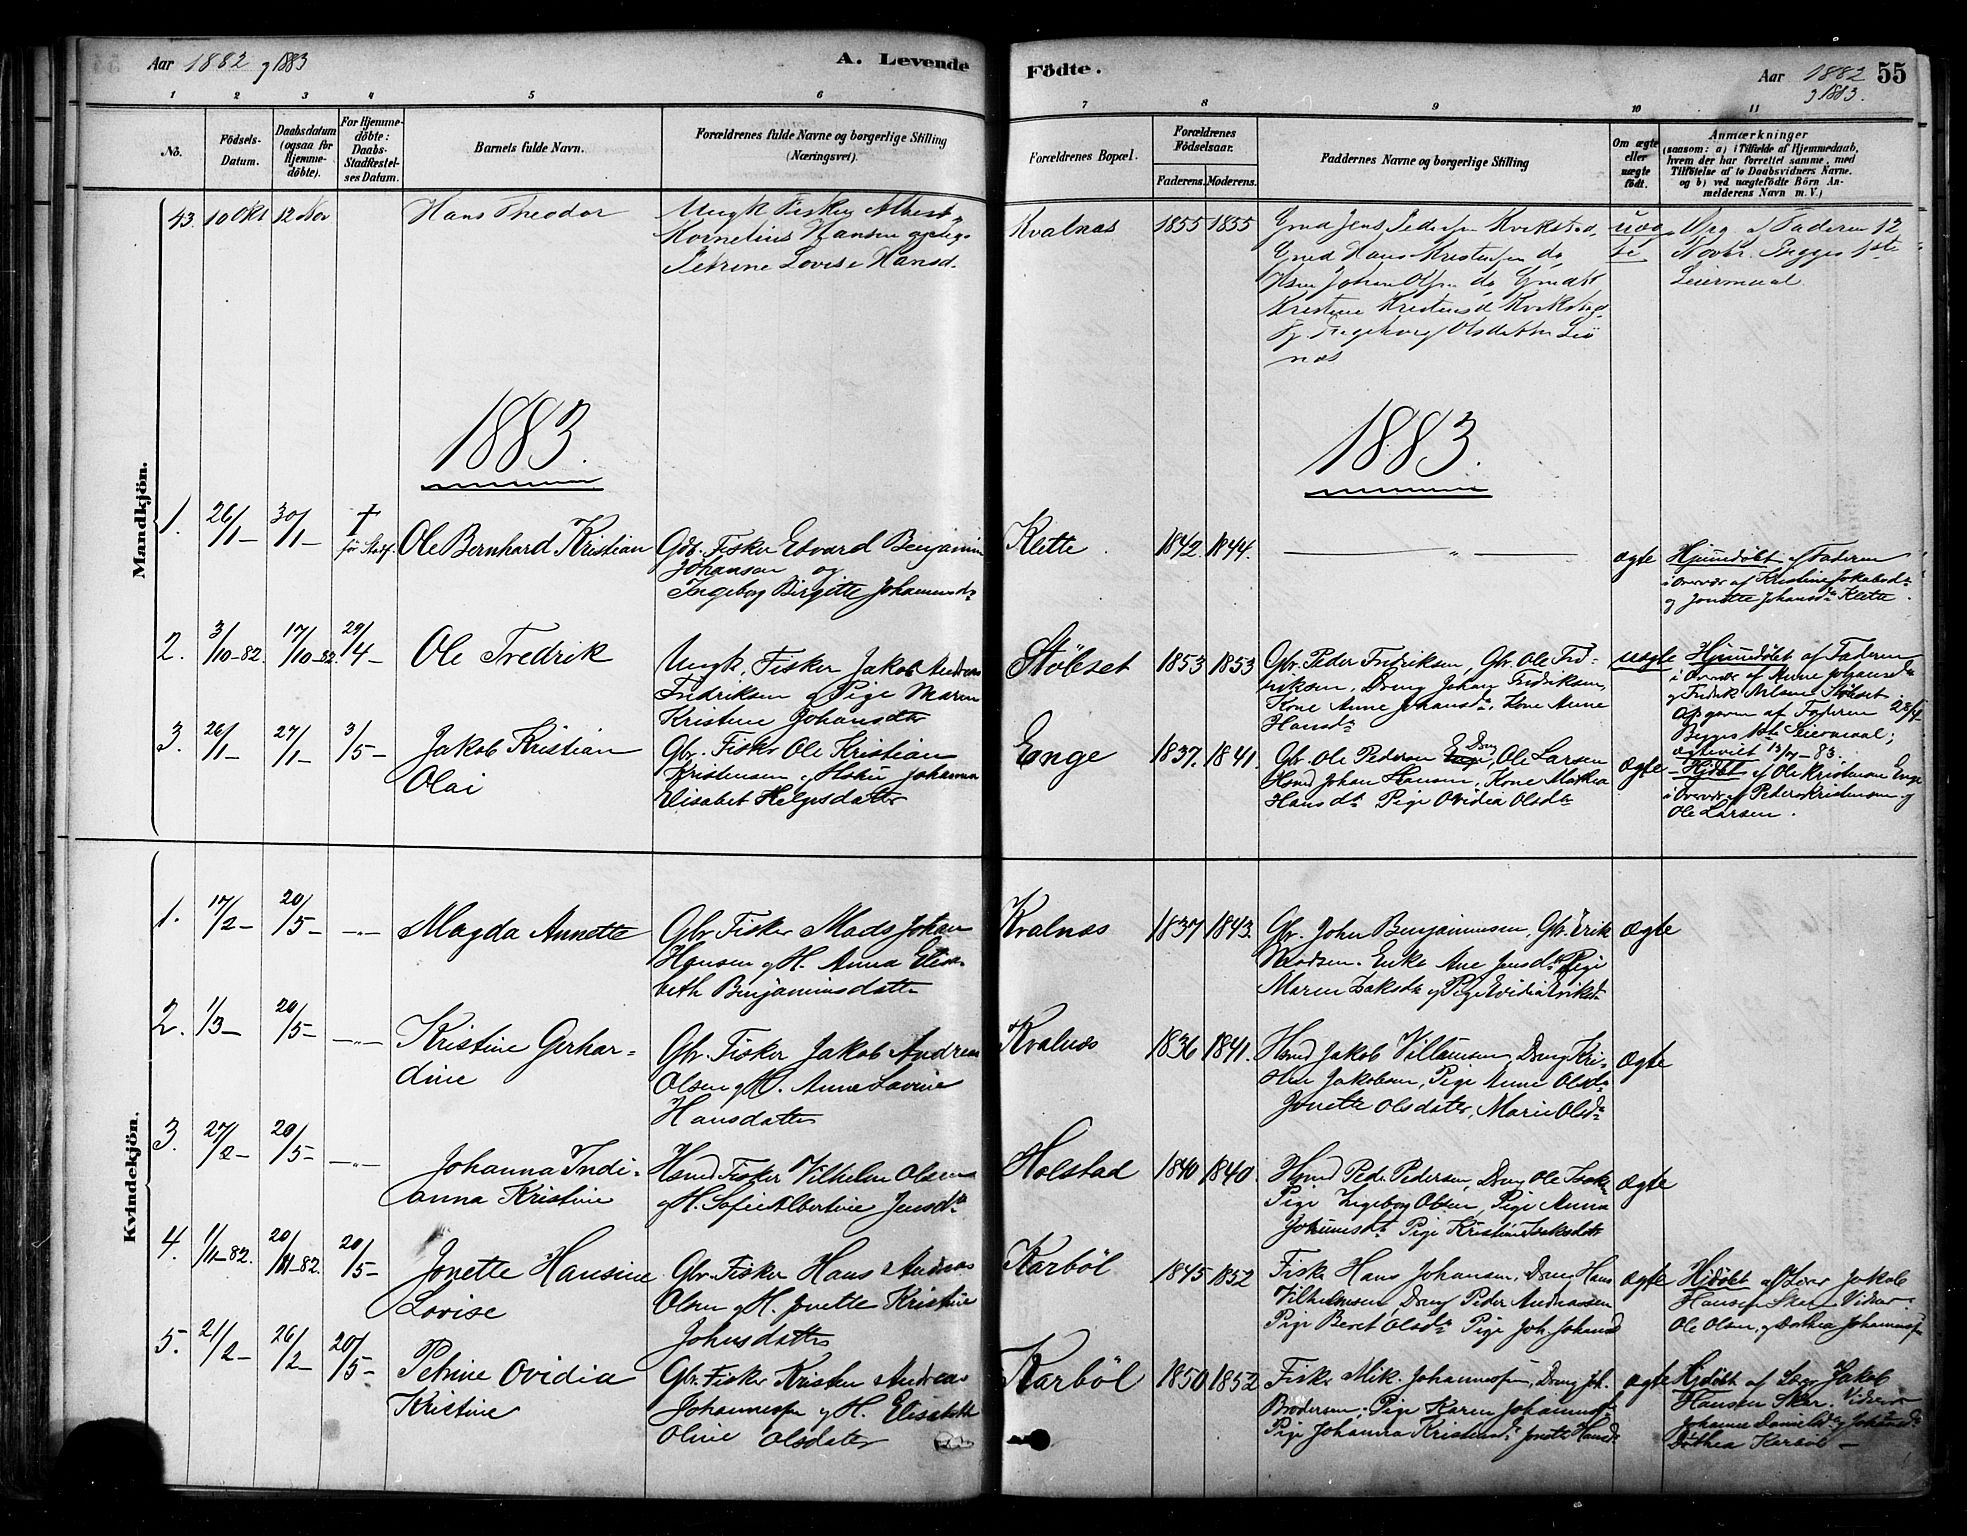 Aar 1882 g 1883
A. Levende Födte.
Aar 1882 55
g 1883.
1 2 3 4 5 6 7 8 9 10 11
No.
Födsels-
Datum.
Daabsdatum
(ogsaa for
Hjemme-
döbte).
For Hjemme-
döbte:
Daabs-
Stadfæstel-
ses Datum.
Barnets fulde Navn.
Forældrenes fulde Navne og borgerlige Stilling
(Næringsvei).
Forældrenes Bopæl.
Forældrenes
Födselsaar.
Faderens. Moderens.
Faddernes Navne og borgerlige Stilling
Om ægte
eller
uægte
födt.
Anmærkninger
(saasom: a) i Tilfælde af Hjemmedaab,
hvem der har forrettet samme, med
Tilföielse af to Daabsvidners Navne.
og b) ved uægtefödte Börn An-
melderens Navn m. V.)
Mandkjön.
43. 10 Okt 12 Nov
Hans Theodor
Ungk Fisker Albert
Kornelius Hansen og Pige
Petrine Lovise Hansd.
Kvalnæs
1855 1855
Gmd Jens Pedersen Kvikstad,
Gmd Hans Kristensen do
Hsm Johan Olsen do Gmdk
Kristine Kristensd Kvikstad
Pg. Ingeborg Olsdatter Lio
næs
uæg
te
Opg. af Faderen 12
Novbr. Begges 1ste
Leiermaal
1883.
1883.
1. 26/1- 30/1- †
før Stadf.
Ole Bernhard Kristian
Gbr. Fisker Edvard Benjamin
Johansen og
Ingeborg Birgitte Johannesd.
Klette.
1842. 1844.
— " —
ægte
Hjemmedøbt af Faderen
i Overvær af Kristine Jakobsd.
og Jonette Johansd. Klette.
2. 3/10-82. 17/10-82. 29/4-
Ole Fredrik
Ungk. Fisker Jakob Andreas
Fredriksen g Pige Maren
Kristine Johansdatter
Stølset
1853 1853
Gbr. Peder Fredriksen, Gbr. Ole Fred-
riksen, Dreng Johan Fredriksen,
Kone Anne Johansd., Kone Anne
Hansd.
uægte
Hjemmedøbt af Faderen
i Overvær af Anne Johansd.
g Fredrik Nilsen Stølset
Opgiven af Faderen 28/4
Begges 1ste Leiermaal;
ægteviet 13/7-83.
3. 26/1- 27/1- 3/5-
Jakob Kristian
Olai
Gbr. Fisker Ole Kristian
Kristensen g Hustru Johanna
Elisabet Helgesdatter
Enge
1837. 1841.
Gbr. Ole Pedersen Enge, Dreng Ole Larsen
Hsmd Johan Hansen, Kone Marthea
Hansdt. Pige Ovidia Olsdt.
ægte
Hjdøbt af Ole Kristensen Enge
i Overvær af Peder Kristensen g
Ole Larsen.
Kvindekjön.
1. 17/2- 20/5- -"-
Magda Annette
Gbr Fisker Mads Johan
Hansen g H. Anna Elisa-
beth Benjaminsdatter
Kvalnæs
1837 1843.
Gbr. Johan Benjaminsen, Gbr. Erik
Madsen. Enke Ane Jensdt. Pige
Maren Isaksdt g Pige Ovidia Eriksdt
ægte
2. 1/3- 20/5- -"-
Kristine Gerhar-
dine
Gbr. Fisker Jakob Andreas
Olsen g H. Anne Lavine
Hansdatter
Kvalnæs
1836 1841.
Hsmd Jakob Villumsen, Dreng Kri-
stian Jakobsen, Pige Anne Olsd.
Jonette Olsdatter, Marie Olsd.
ægte
3. 27/2- 20/5- -"-
Johanna Indi-
anna Kristine
Hsmd Fisker Vilhelm Olsen
g H. Sofie Albertine Jensdt.
Holstad
1840 1840.
Hsmd Peder Pedersen, Dreng Ole Isaks.
Pige Ingeborg Olsen, Pige Anna
Johannesdt. Pige Kristine Isaksdatt.
ægte
4. 1/11-82. 20/11-82. 20/5-
Jonette Hansine
Lovise
Gbr. Fisker Hans Andreas
Olsen g H. Jonette Kristine
Johnsdatter
Karbøl
1845 1852
Fisker Hans Johansen, Dreng Hans
Vilhelmsen, Dreng Peder Andreassen
Pige Beret Olsd. Pige Joh. Johansd
ægte
Hjdøbt af Lærer Jakob
Hansen Skar. Vidner:
Ole Olsen, g Dorthea Johannesen
5. 21/2- 26/2- 20/5-
Petrine Ovidia
Kristine
Gbr. Fisker Kristen Andreas
Johannessen g H. Elisabeth
Oline Olsdater
Karbøl
1850 1852
Fisker Mik. Johannessen, Dreng Joh.
Brodersen, Pige Karen Johannessen
Pige Johanna Kristensd., Jonette Hansd.
ægte
Hjdøbt af Lær. Jakob
Hansen Skar. Vidner
Johanna Danielsd. g Johansd.
Dorthea Karbøl -